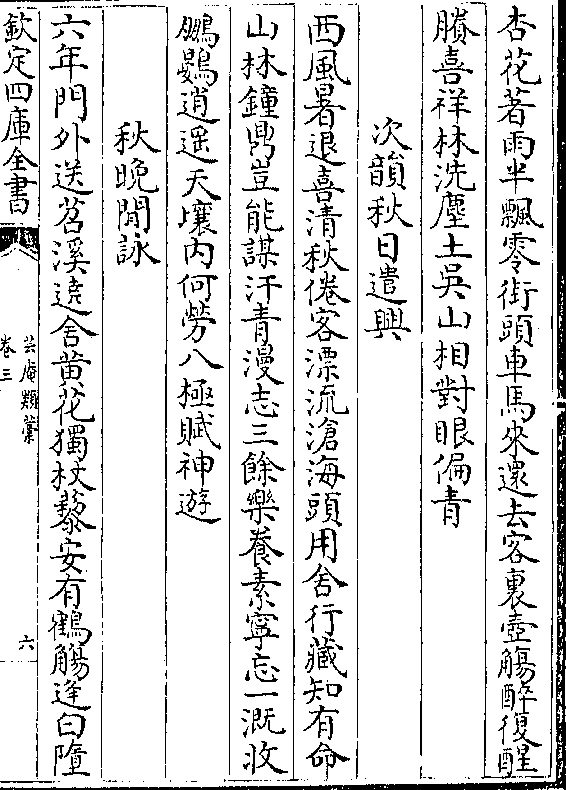 杏花著雨半飄零街頭車馬來還去客裏壺觴醉復醒
賸喜祥林洗塵土吳山相對眼偏青
次韻秋日遣興
西風暑退喜清秋倦客漂流滄海頭用舍行藏知有命
山林鐘鼎豈能謀汗青漫志三餘樂養素寧忘一溉收
鵬鷃逍遥天壤内何勞八極賦神遊
秋晚閒詠
六年門外送苕溪遶舍黄花獨杖藜安有鶴觴逢白墮
欽定四庫全書
芸庵類藁
卷三
六